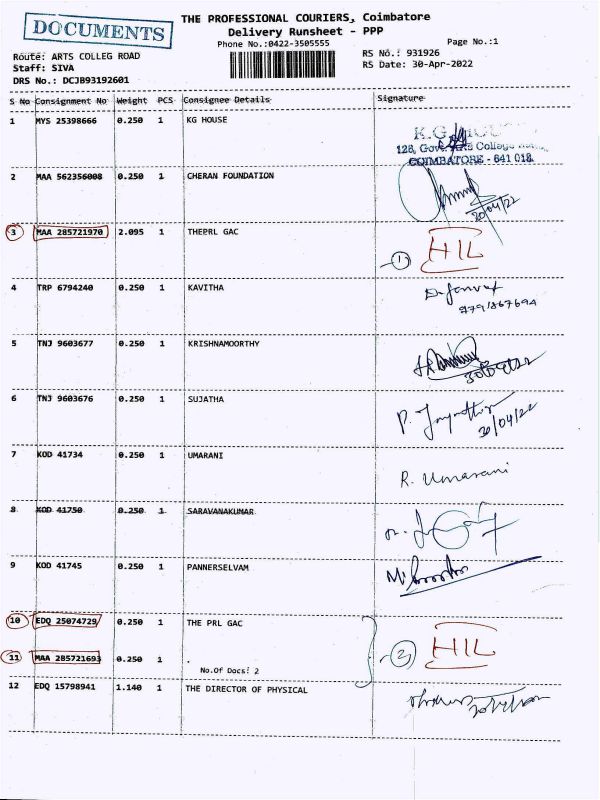 DOCUMENTS
THE PROFESSIONAL COURIERS, Coimbatore
Delivery Runsheet - PPP
Phone No.:0422-3505555
Page No.:1
Route: ARTS COLLEG ROAD
RS No.: 931926
Staff: SIVA
RS Date: 30-Apr-2022
DRS No.: DCJB93192601
S No Consignment No Weight PCS Consignee Details Signature
1 MYS 25398666 0.250 1 KG HOUSE
K.G. HOUSE
128, Govt. Arts College
COIMBATORE - 641 018.
2 MAA 562356008 0.250 1 CHERAN FOUNDATION
30/04/22
3 MAA 285721970 2.095 1 THEPRL GAC
1 HIL
4 TRP 6794240 0.250 1 KAVITHA
5 TNJ 9603677 0.250 1 KRISHNAMOORTHY
6 TNJ 9603676 0.250 1 SUJATHA
30/04/22
7 KOD 41734 0.250 1 UMARANI
R. Umarani
8 KOD 41750 0.250 1 SARAVANAKUMAR
9 KOD 41745 0.250 1 PANNERSELVAM
10 EDQ 25074729 0.250 1 THE PRL GAC
2 HIL
11 MAA 285721693 0.250 1 .
No.Of Docs: 2
12 EDQ 15798941 1.140 1 THE DIRECTOR OF PHYSICAL